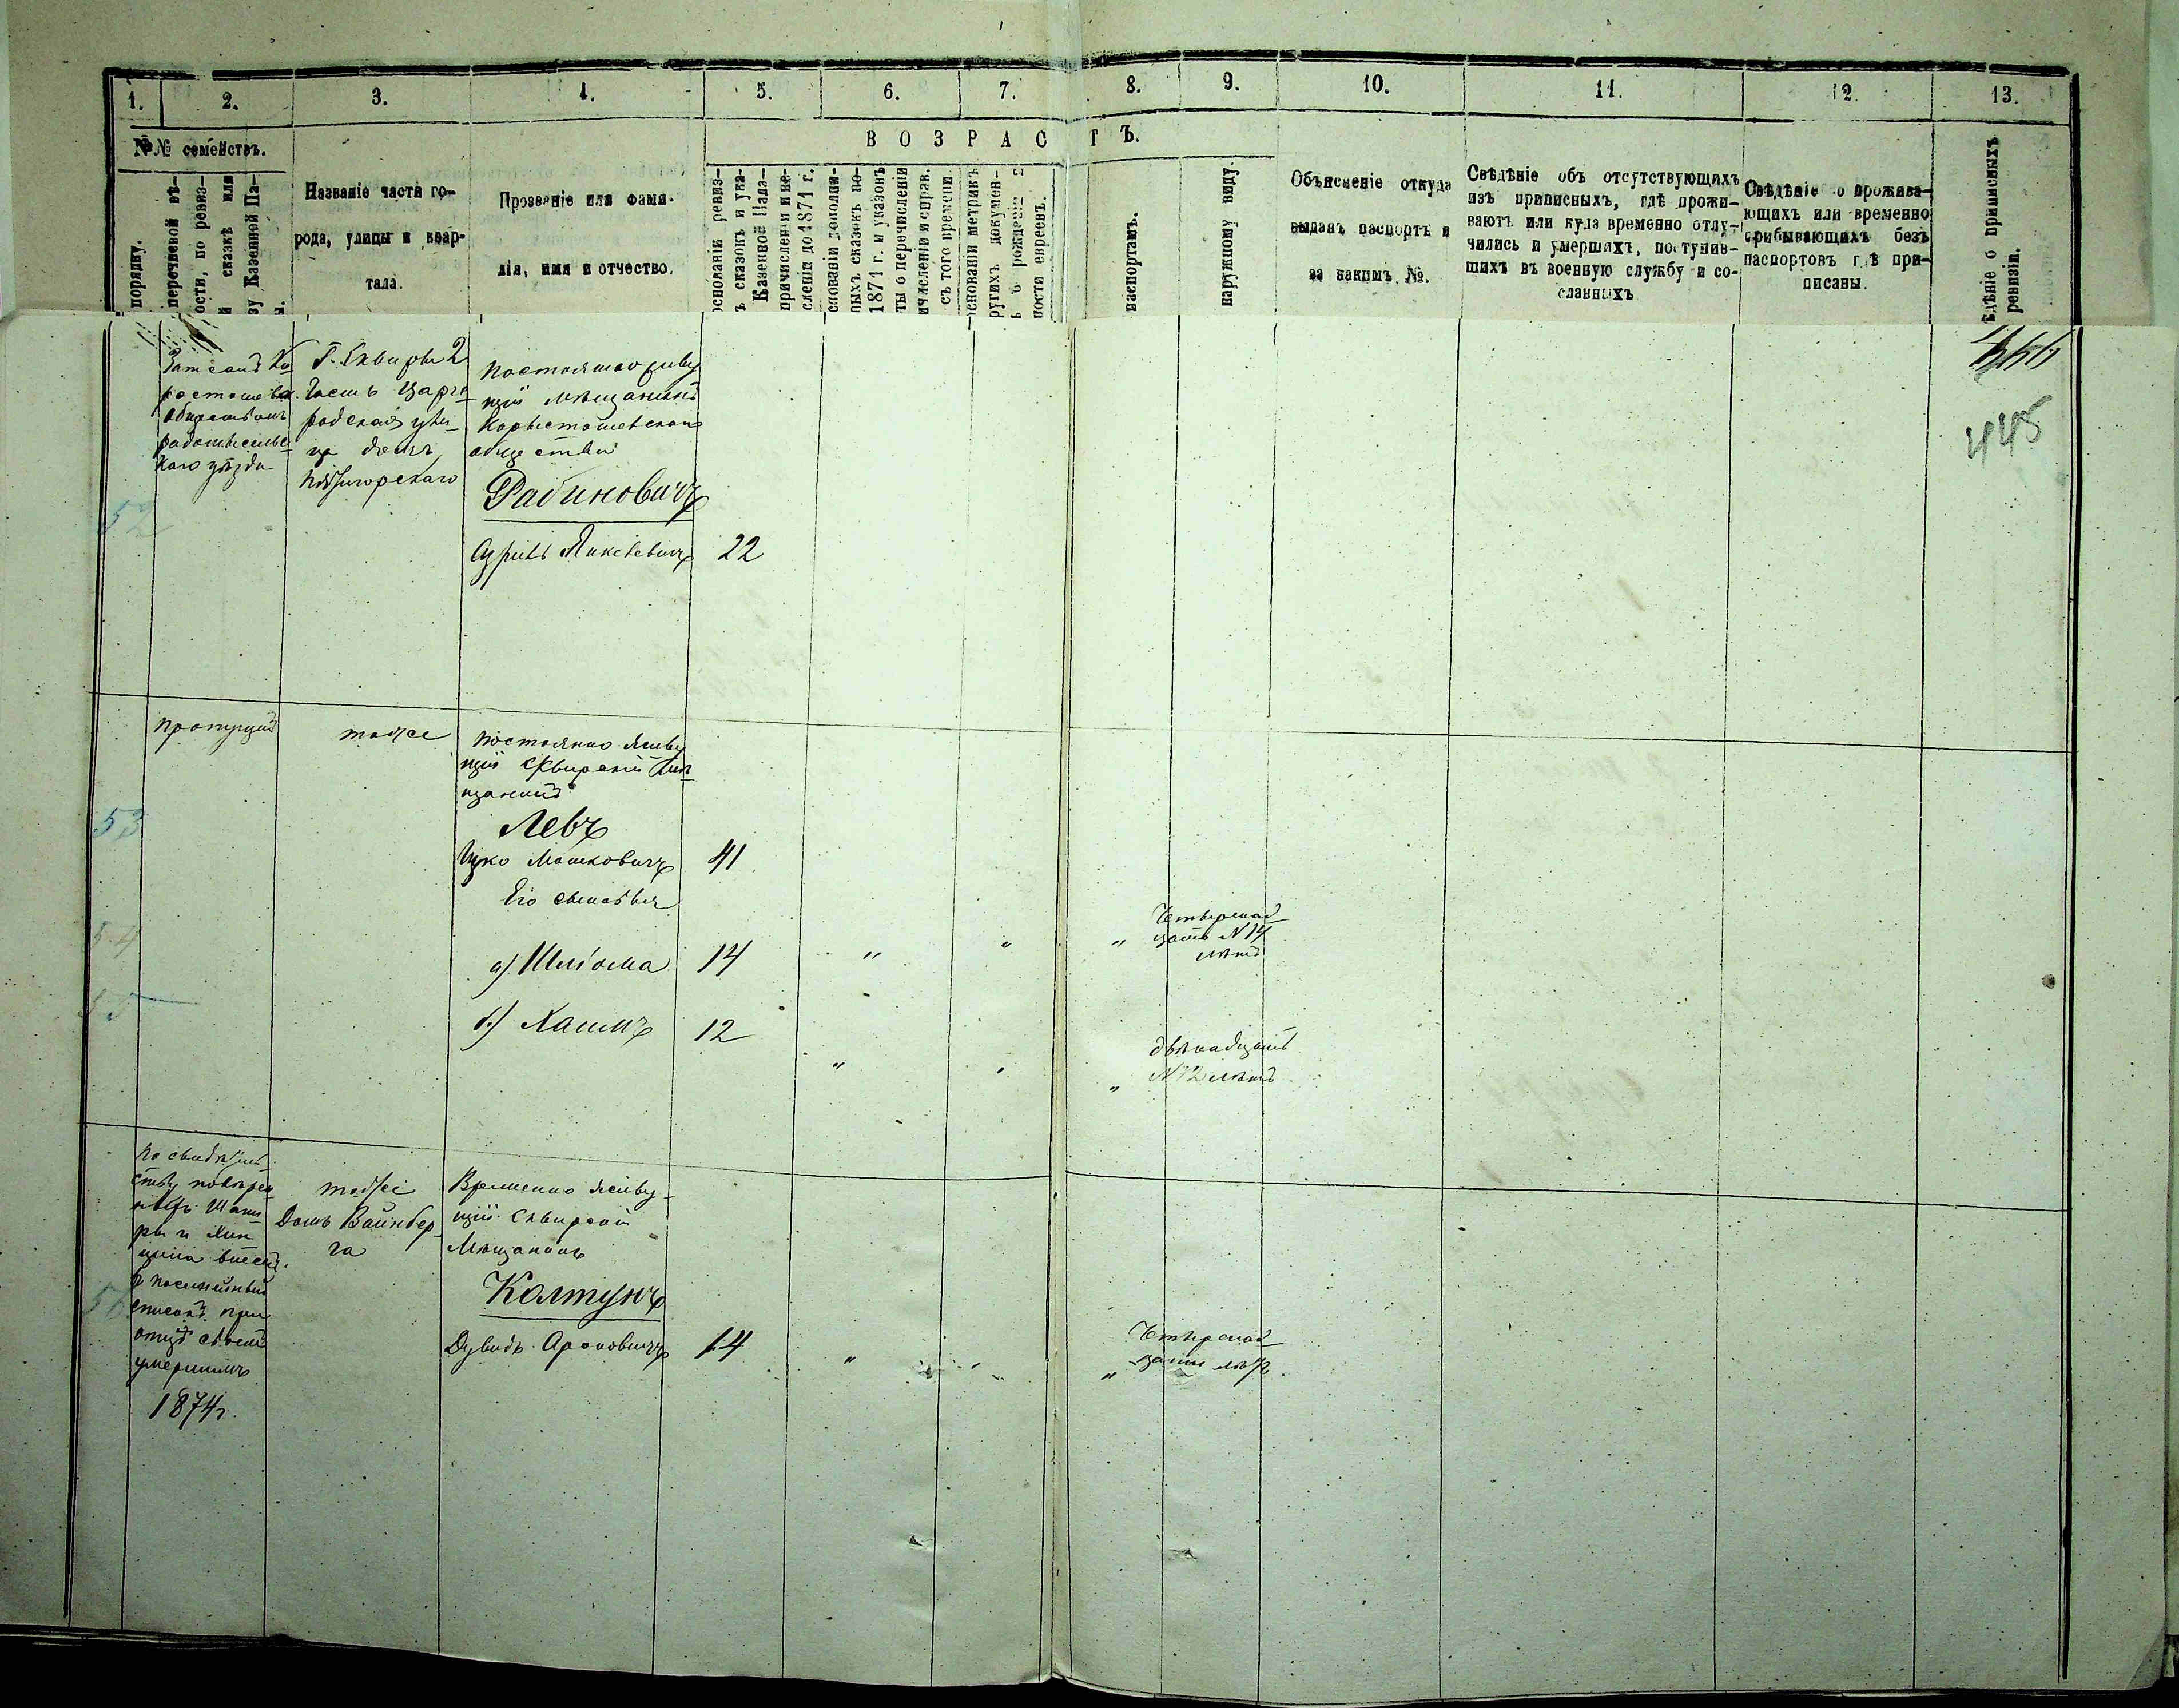 1.
2.
3.
4.
5.
6.
7.
8.
9.
10.
11.
12.
13.
№№ семействъ.
ВОЗРАСТЪ.
порядку.
перечневой вѣ-
ости, по ревиз-
й сказкѣ или
зу Казенной Па-
Названіе части го-
рода, улицы и квар-
тала.
Прозваніе или фами-
лія, имя и отчество.
основаніи ревиз-
ъ сказокъ и ука-
Казенной Пала-
причисленіи и ис-
сленіи до 1871 г.
сновани дополни-
ныхъ сказокъ по-
1871 г. и указовъ
ты о перечисленіи
ичисленіи и справ.
съ того времени.
основаніи метрикъ
ругихъ докумен-
ъ о рожденіи
ности евреевъ.
паспортамъ.
наружному виду.
Объясненіе откуда
выданъ паспортъ и
за какимъ №.
Свѣдѣніе объ отсутствующихъ
изъ приписныхъ, гдѣ прожи-
ваютъ или куда временно отлу-
чились и умершихъ, поступив-
шихъ въ военную службу и со-
сланныхъ
Свѣдѣніе о прожива-
ющихъ или временно
прибывающихъ безъ
паспортовъ гдѣ при-
писаны.
ѣдѣніе о приписныхъ
ревизіи.
445
Г. Сквиры 2
Часть Царго
родская ули
ца домъ
постоянно живу
щій мѣщанинъ
общества
Рабиновичъ
52
22
пропущенъ
тоже
постоянно живу
щій Сквирскій мѣ
щанинъ
53
Левъ
Ицко Мошковичъ 41
Его сыновья
54
а) Шліома 14 " " "
Четырнад
цать № 14
лѣтъ
55
б) Хаимъ 12 " " "
двѣнадцать
№ 12 лѣтъ
по свидѣтель
ству повѣрен
ныхъ
списокъ при
отцѣ своемъ
умершимъ
1874 г.
тоже
Домъ Вайнбер
га
Временно живу-
щій Сквирскій
Мѣщанинъ
Колтунъ
Дувидъ Ароновичъ 14 " " "
Четырнад
цати лѣтъ